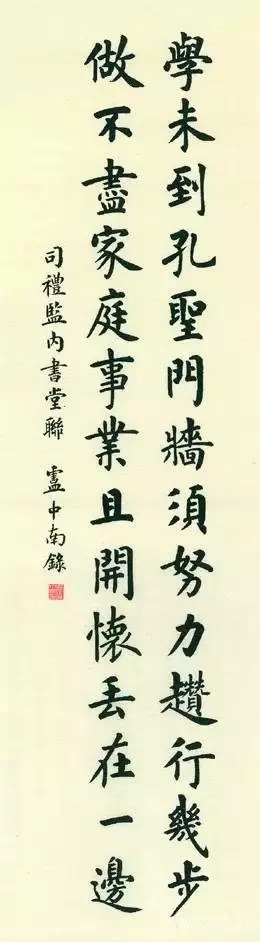 學未到孔聖門牆須努力趲行幾步
做不盡家庭事業且開懷丟在一邊
司禮監內書堂聯 盧中南錄